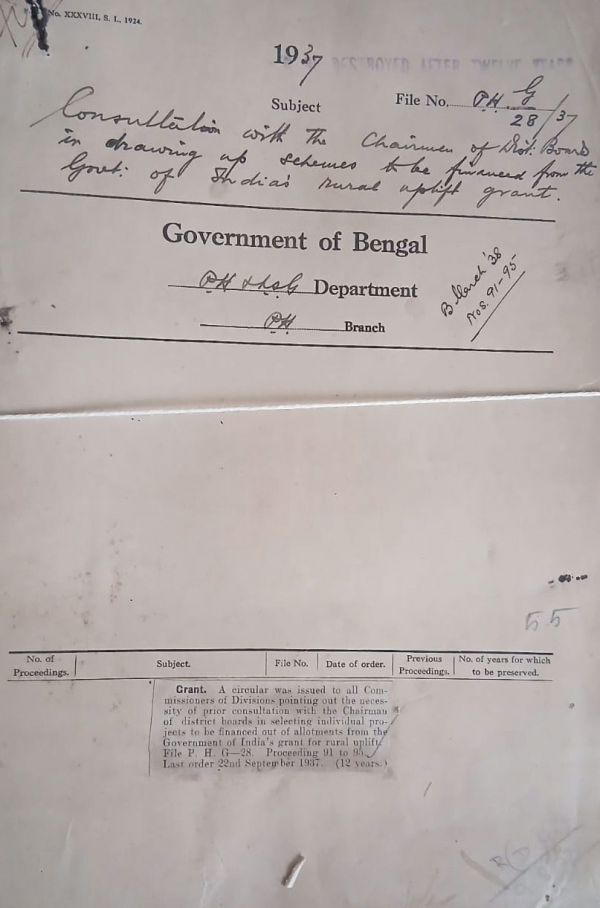 No. XXXVIII, S. L., 1924.
1937 DESTROYED AFTER TWELVE YEARS
Subject File No. P.H. G/28/37
Consultation with the Chairmen of Dist. Board
in drawing up schemes to be financed from the
Govt. of India's rural uplift grant.
Government of Bengal
PH & LSG Department
PH Branch
B March '38
Nos. 91-95
55
No. of Proceedings. Subject. File No. Date of order. Previous Proceedings. No. of years for which to be preserved.
Grant. A circular was issued to all Com-
missioners of Divisions pointing out the neces-
sity of prior consultation with the Chairman
of district boards in selecting individual pro-
jects to be financed out of allotments from the
Government of India's grant for rural uplift.
File P. H. G—28. Proceeding 91 to 95.
Last order 22nd September 1937. (12 years.)